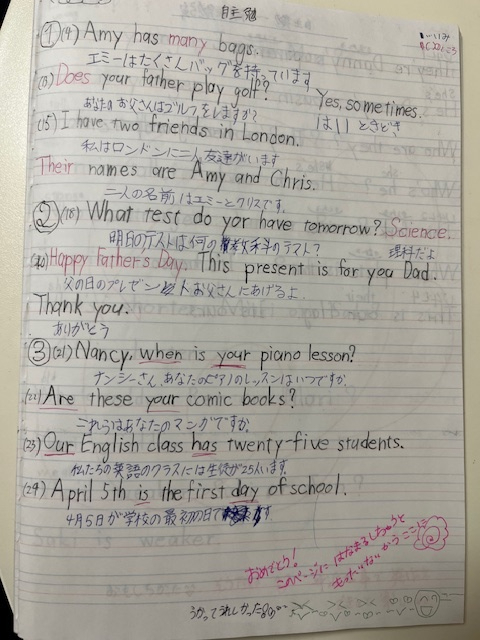 自主勉
①(9) Amy has many bags.
エミーはたくさんバッグを持っています
(13) Does your father play golf? Yes, sometimes.
あなたのお父さんはゴルフをしますか? はい ときどき
(15) I have two friends in London.
私はロンドンに二人友達がいます
Their names are Amy and Chris.
二人の名前はエミーとクリスです。
②(18) What test do yor have tomorrow? Science.
明日のテストは何の教科のテスト? 理科だよ
(20) Happy Father's Day. This present is for you Dad.
父の日のプレゼント お父さんにあげるよ
Thank you.
ありがとう
③(21) Nancy, when is your piano lesson?
ナンシーさん、あなたのピアノのレッスンはいつですか。
(22) Are these your comic books?
これらはあなたのマンガですか。
(23) Our English class has twenty-five students.
私たちの英語のクラスには生徒が25人います。
(24) April 5th is the first day of school.
4月5日が学校の最初の日です。
おめでとう!
このページに はなまるしちゃうと
うかってうれしかった